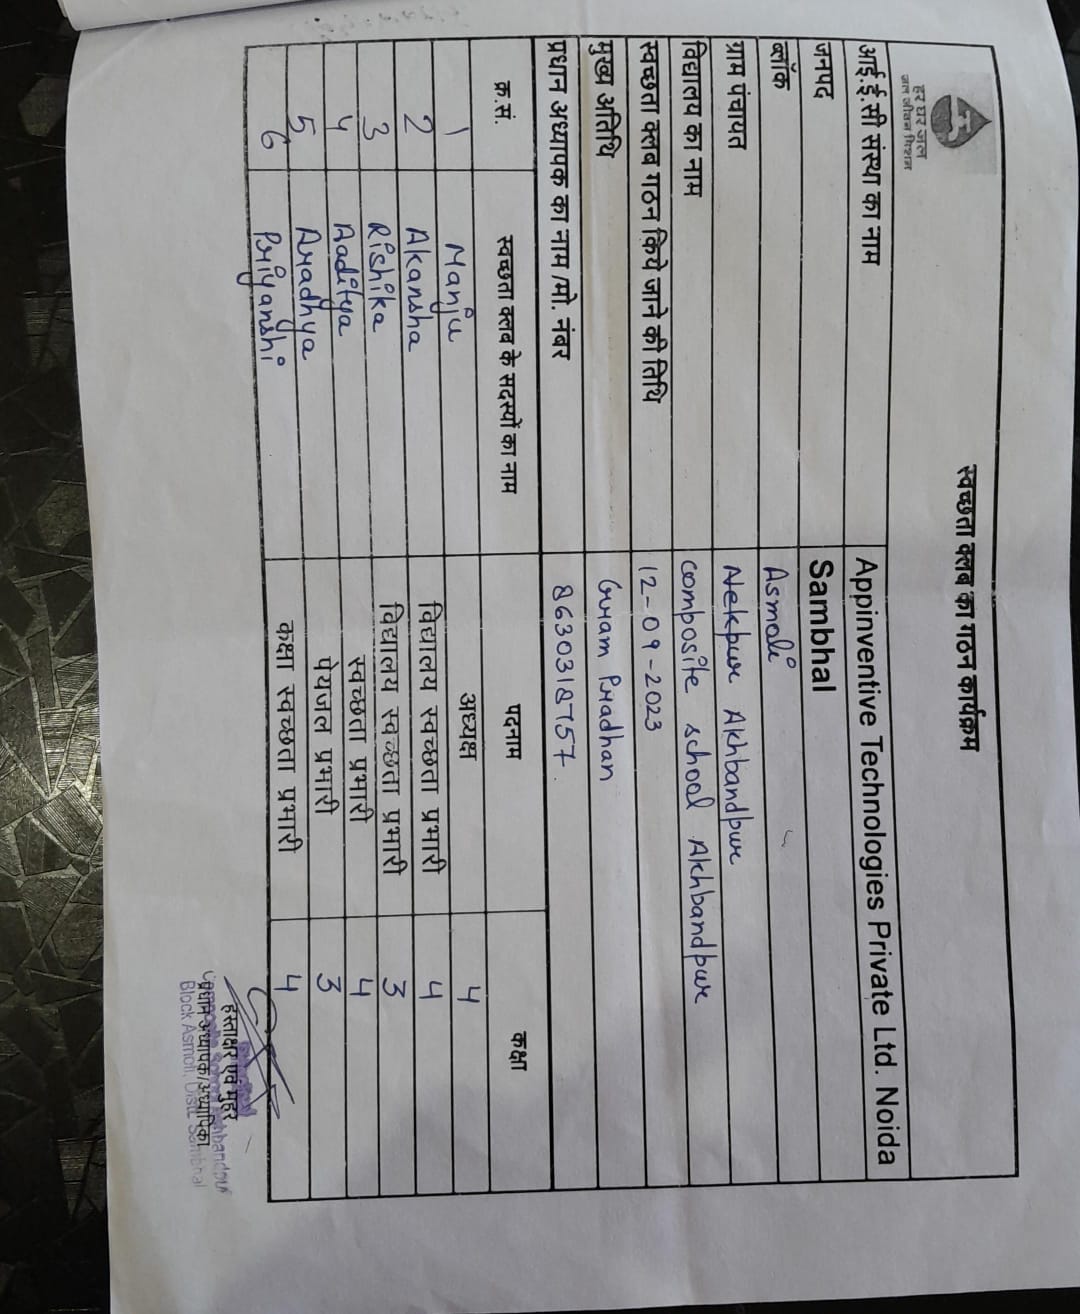 हर घर जल
जल जीवन मिशन
स्वच्छता क्लब का गठन कार्यक्रम
आई.ई.सी संस्था का नाम Appinventive Technologies Private Ltd. Noida
जनपद Sambhal
ब्लॉक Asmoli
ग्राम पंचायत Nekpur Akhbandpur
विद्यालय का नाम composite school Akhbandpur
स्वच्छता क्लब गठन किये जाने की तिथि 12-09-2023
मुख्य अतिथि Gram Pradhan
प्रधान अध्यापक का नाम /मो. नंबर 8630318757
क्र.सं. स्वच्छता क्लब के सदस्यों का नाम पदनाम कक्षा
1 Manju अध्यक्ष 4
2 Akansha विद्यालय स्वच्छता प्रभारी 4
3 Rishika विद्यालय स्वच्छता प्रभारी 3
4 Aaditya स्वच्छता प्रभारी 4
5 Aradhya पेयजल प्रभारी 3
6 Priyanshi कक्षा स्वच्छता प्रभारी 4
हस्ताक्षर एवं मुहर
प्रधान अध्यापक/अध्यापिका
Block Asmoli, Distt. Sambhal